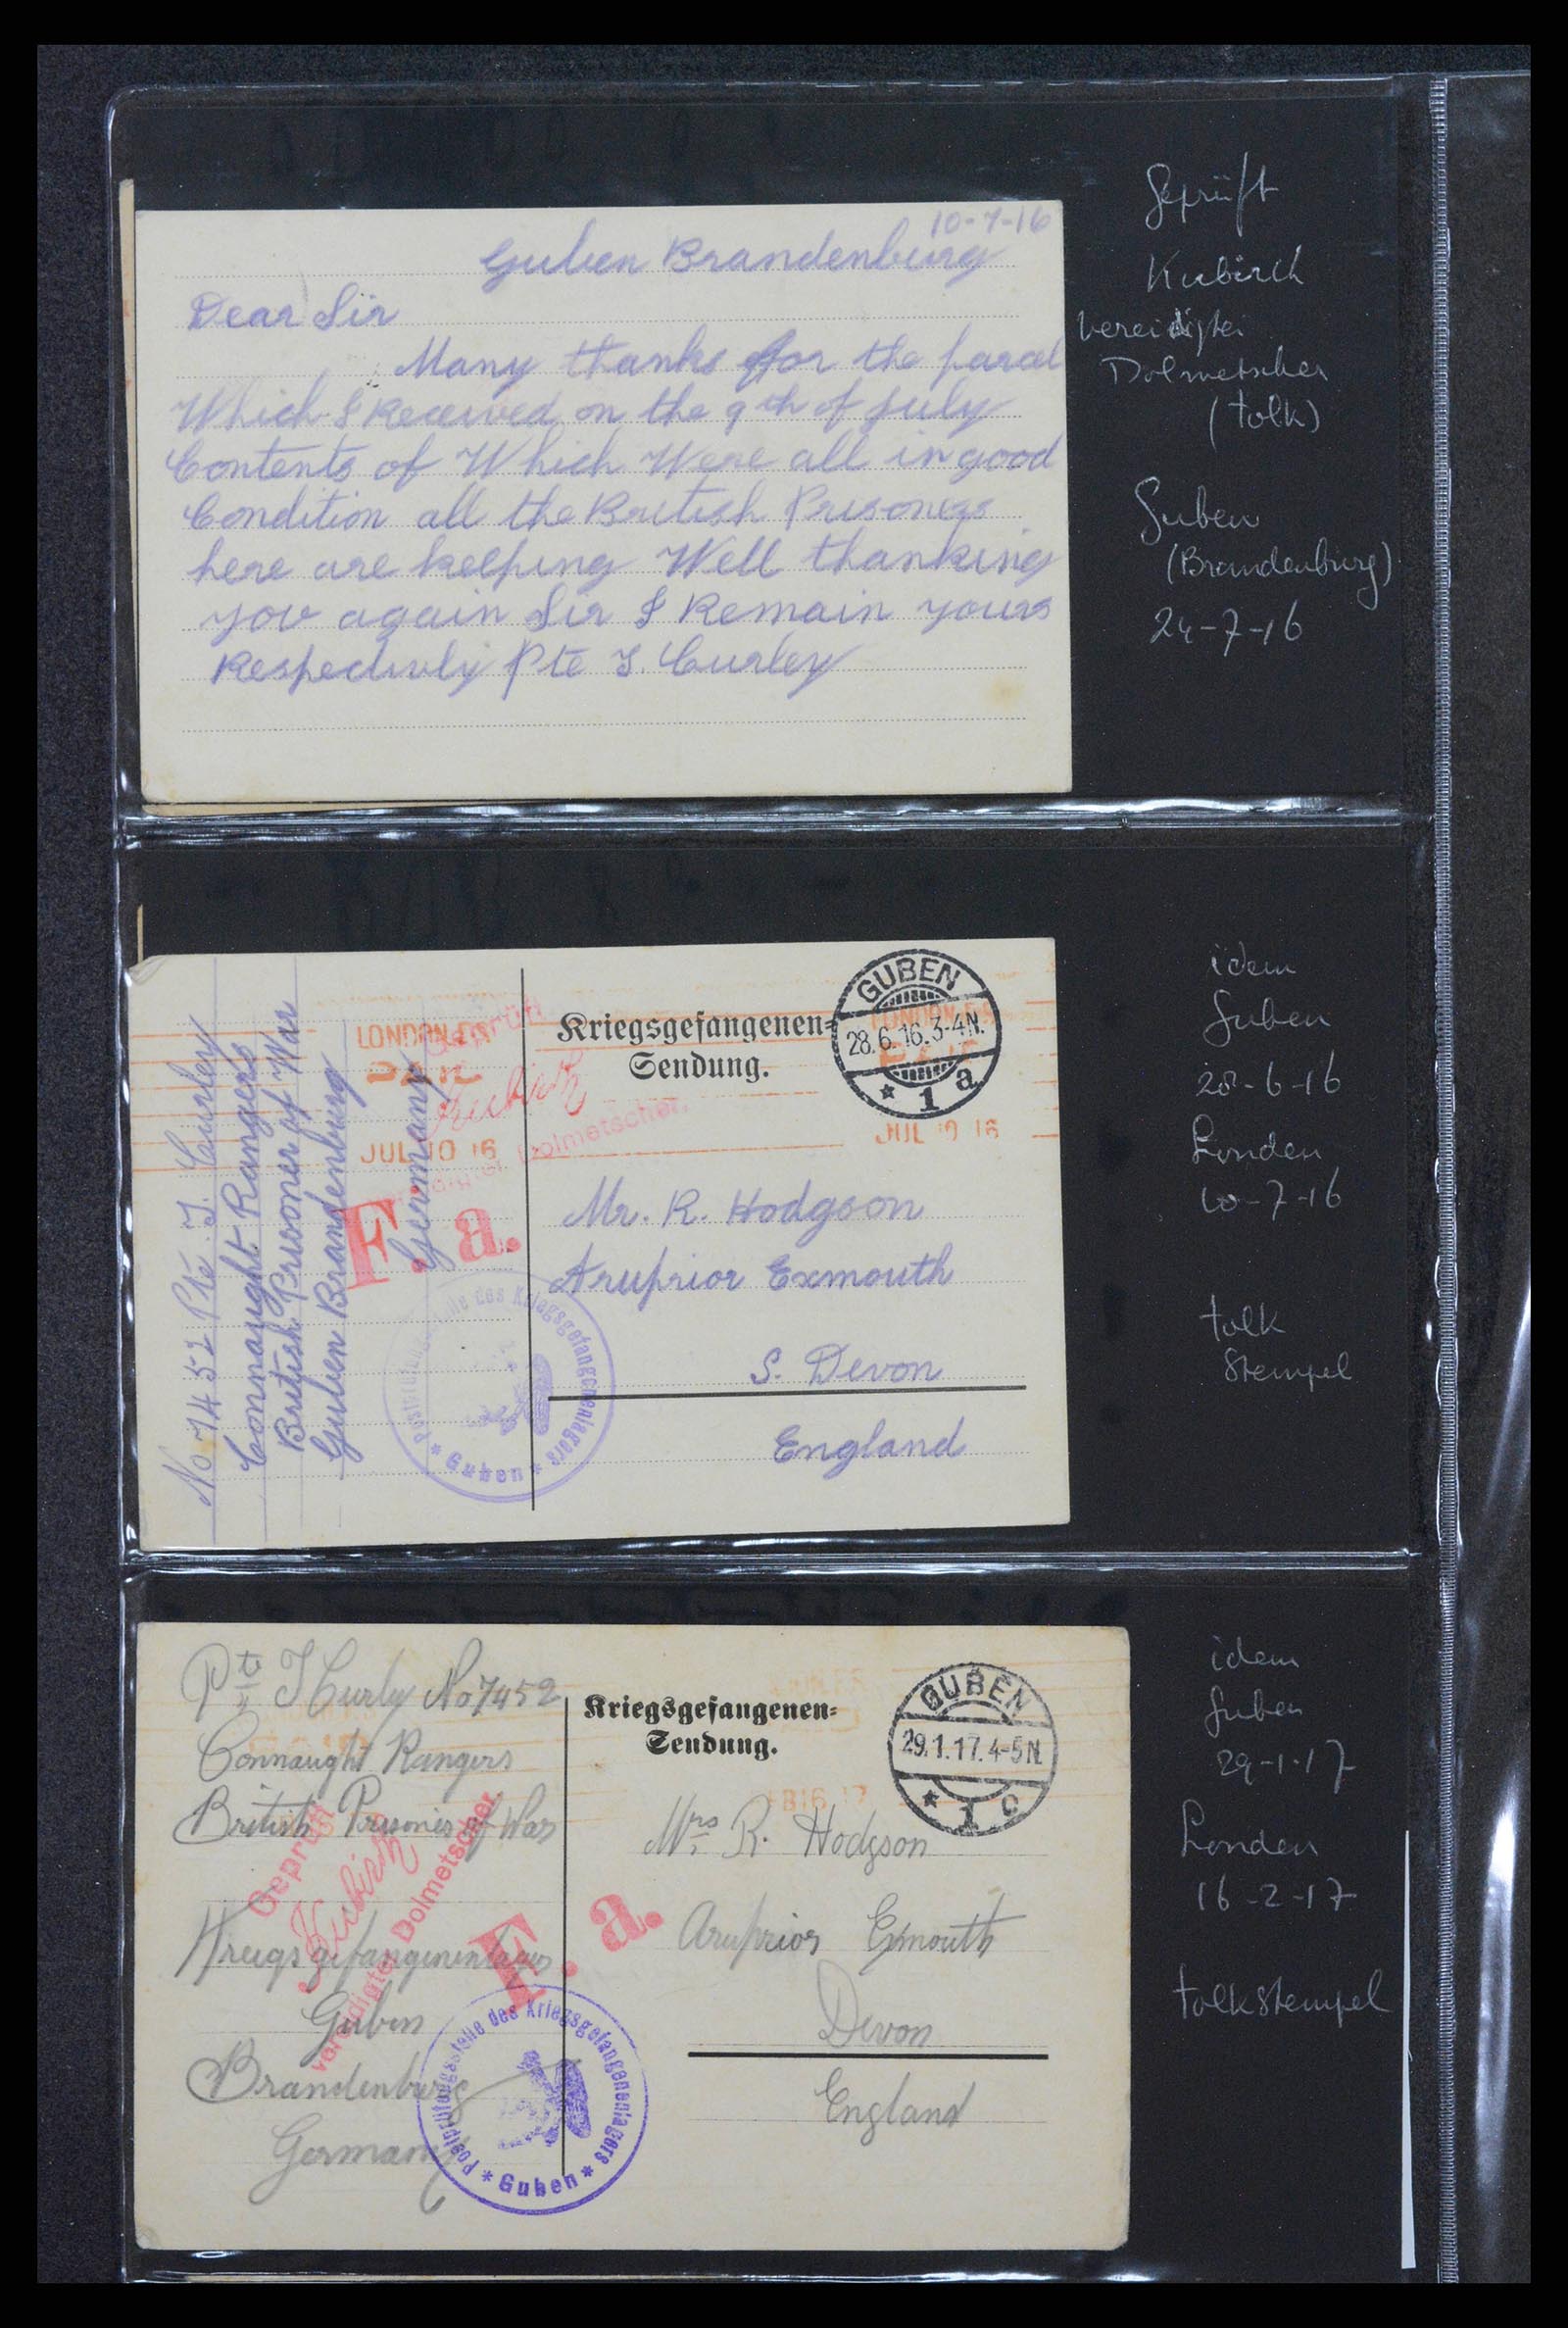 10-7-16
Guben Brandenburg
Dear Sir
Many thanks for the parcel
Which I Received on the 9th of July
Contents of Which Were all in good
Condition all the British Prisoners
here are kelping Well thanking
you again Sir I Remain yours
Respectivly Pte J. Curley
Geprüft
Kubirch
Vereidigter
Dolmetscher
(tolk)
Guben
(Brandenburg)
24-7-16
No 7452 Pte J. Curley
Connaught Rangers
British Prisoner of War
Guben Brandenburg
Germany
LONDON
JUL 10 16
Kubirch
Dolmetscher.
F. a.
Postprüfungsstelle des Kriegsgefangenenlagers
* Guben *
Kriegsgefangenen=
Sendung.
GUBEN
28.6.16.3-4N.
* 1 a
JUL 10 16
Mr. R. Hodgson
Aruprior Exmouth
S. Devon
England
idem
Guben
28-6-16
Londen
10-7-16
tolk
stempel
Pte J Curley No 7452
Connaught Rangers
British Prisoner of War
Kreigsgefangenenlager
Guben
Brandenburg
Germany
Geprüft
Kubirch
vereidigter Dolmetscher.
F. a.
Postprüfungsstelle des Kriegsgefangenenlagers
* Guben *
Kriegsgefangenen=
Sendung.
GUBEN
29.1.17.4-5N.
* 1 c
Mrs R. Hodgson
Aruprior Exmouth
Devon
England
idem
Guben
29-1-17
Londen
16-2-17
tolkstempel